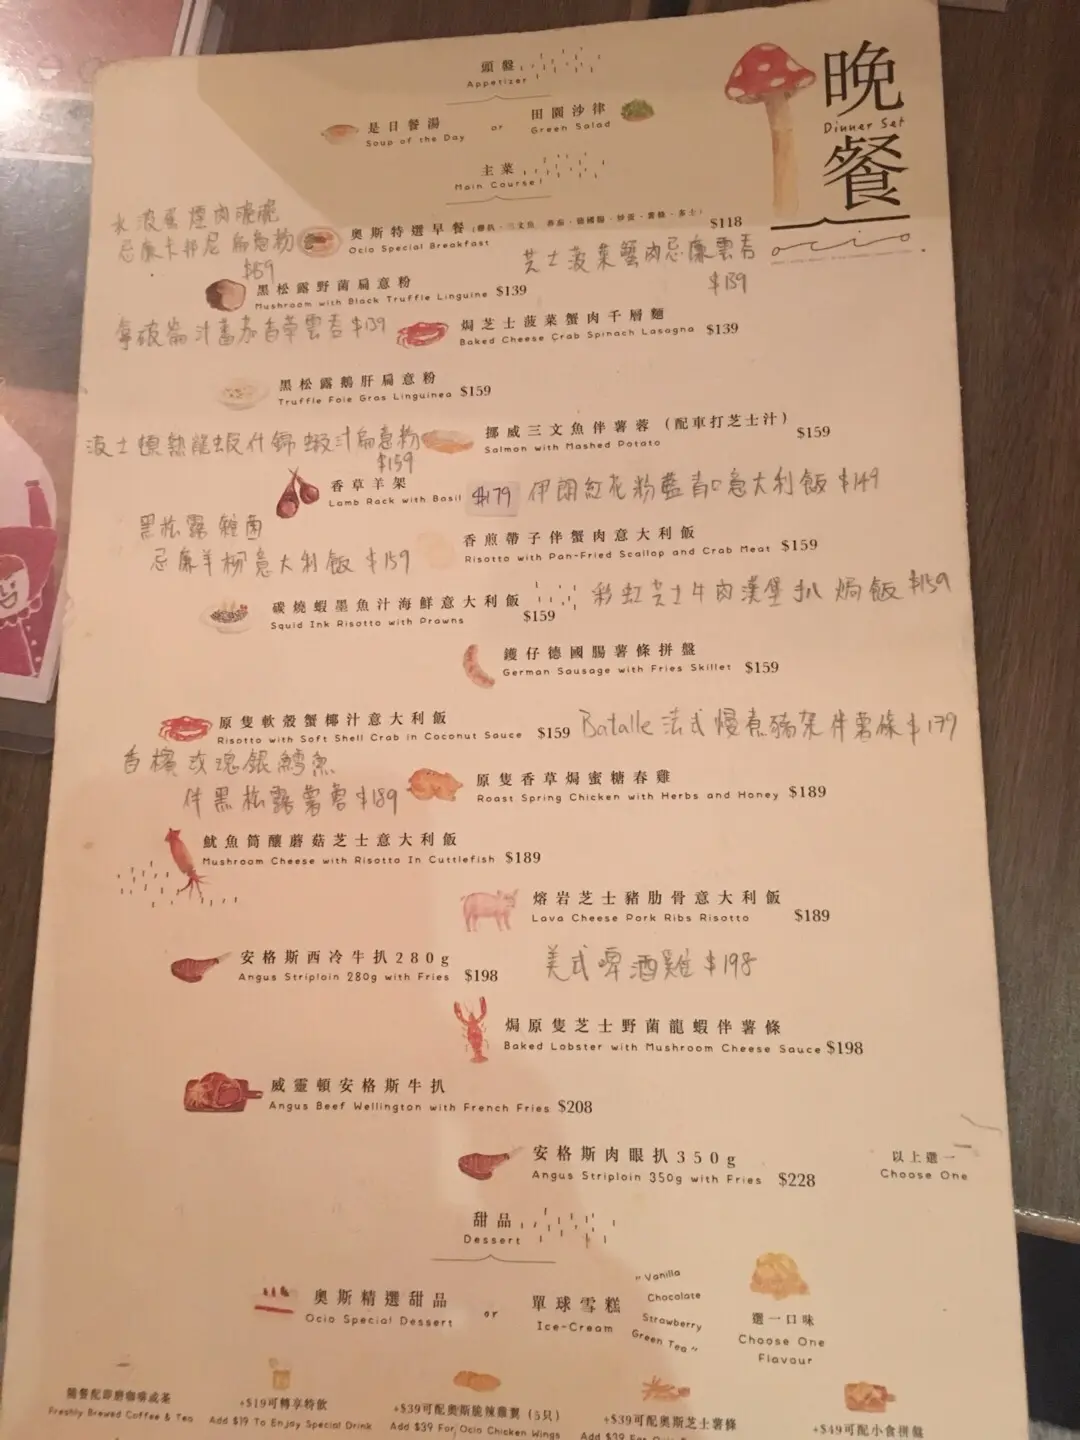 頭盤
Appetizer
晚餐
Dinner Set
ocio
是日餐湯 or 田園沙律
Soup of the Day Green Salad
主菜
Main Course
水波蛋煙肉脆脆
忌廉卡邦尼扁意粉
奧斯特選早餐 $118
Ocio Special Breakfast
芝士菠菜蟹肉忌廉雲吞
$139
黑松露野菌扁意粉
Mushroom with Black Truffle Linguine $139
拿破崙汁蕃茄吞拿雲吞 $139
焗芝士菠菜蟹肉千層麵
Baked Cheese Crab Spinach Lasagna $139
黑松露鵝肝扁意粉
Truffle Foie Gras Linguinea $159
波士頓熱龍蝦什錦蝦汁扁意粉
$159
挪威三文魚伴薯蓉(配車打芝士汁)
Salmon with Mashed Potato $159
香草羊架
Lamb Rack with Basil $179
伊朗紅花粉藍青口意大利飯 $149
黑松露雜菌
忌廉羊柳意大利飯 $159
香煎帶子伴蟹肉意大利飯
Risotto with Pan-Fried Scallop and Crab Meat $159
碳燒蝦墨魚汁海鮮意大利飯
Squid Ink Risotto with Prawns $159
彩虹芝士牛肉漢堡扒焗飯 $159
鑊仔德國腸薯條拼盤
German Sausage with Fries Skillet $159
原隻軟殼蟹椰汁意大利飯
Risotto with Soft Shell Crab in Coconut Sauce $159
Batalle 法式慢煮豬架伴薯條 $179
香檳玫瑰銀鱈魚
伴黑松露薯蓉 $189
原隻香草焗蜜糖春雞
Roast Spring Chicken with Herbs and Honey $189
魷魚筒釀蘑菇芝士意大利飯
Mushroom Cheese with Risotto In Cuttlefish $189
熔岩芝士豬肋骨意大利飯
Lava Cheese Pork Ribs Risotto $189
安格斯西冷牛扒280g
Angus Striploin 280g with Fries $198
美式啤酒雞 $198
焗原隻芝士野菌龍蝦伴薯條
Baked Lobster with Mushroom Cheese Sauce $198
威靈頓安格斯牛扒
Angus Beef Wellington with French Fries $208
安格斯肉眼扒350g
Angus Striploin 350g with Fries $228
以上選一
Choose One
甜品
Dessert
奧斯精選甜品 or 單球雪糕
Ocio Special Dessert Ice-Cream
"Vanilla
Chocolate
Strawberry
Green Tea"
選一口味
Choose One
Flavour
隨餐配即磨咖啡或茶
Freshly Brewed Coffee & Tea
+$19可轉享特飲
Add $19 To Enjoy Special Drink
+$39可配奧斯脆辣雞翼(5只)
Add $39 For Ocio Chicken Wings
+$39可配奧斯芝士薯條
Add $39 For
+$49可配小食拼盤